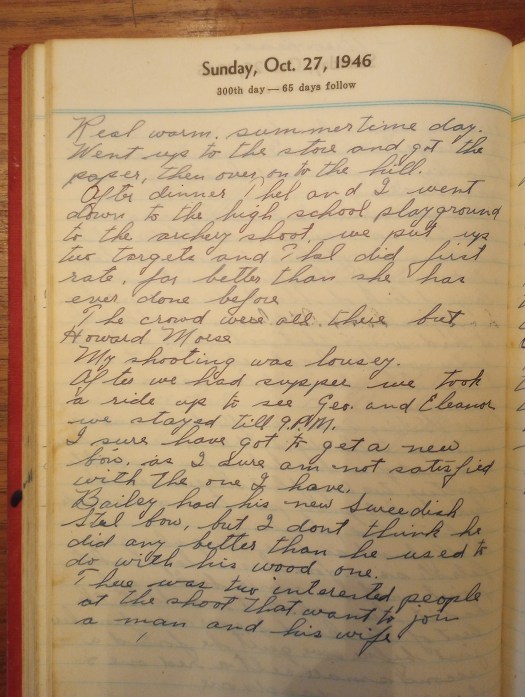 Sunday, Oct. 27, 1946
300th day — 65 days follow
Real warm. summertime day.
Went up to the store and got the
paper, then over on to the hill.
After dinner Thel and I went
down to the high school playground
to the archery shoot, we put up
two targets and Thel did first
rate, far better than she has
ever done before
The crowd were all there but,
Howard Morse
My shooting was lousey.
After we had supper we took
a ride up to see Geo. and Eleanor
we stayed till 9.P.M.
I sure have got to get a new
bow, as I sure am not satisfied
with the one I have.
Bailey had his new Sweedish
steel bow, but I dont think he
did any better than he used to
do with his wood one.
There was two interested people
at the shoot that want to join
a man and his wife